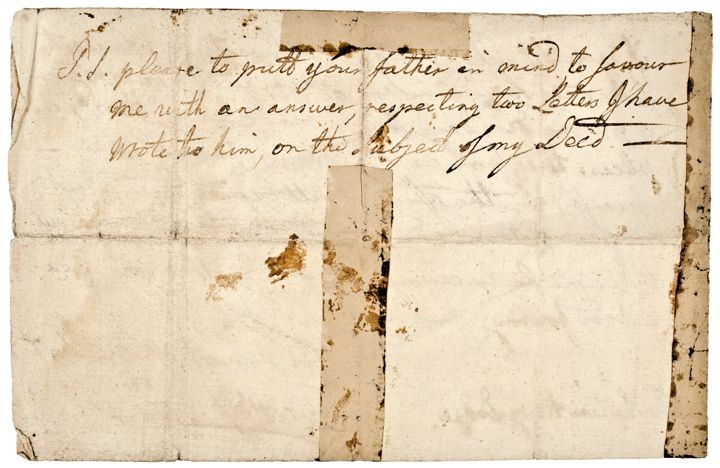 P.S. please to putt your father in mind, to favour
me with an answer, respecting two Letters I have
wrote to him, on the Subject of my Deed.